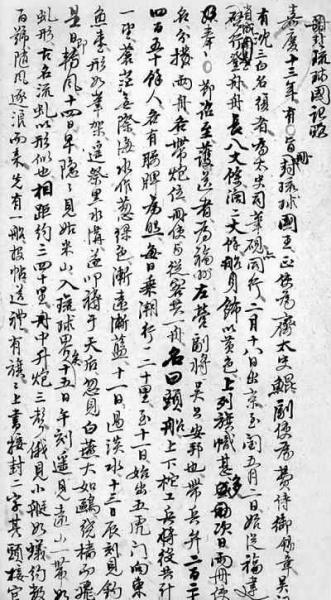 冊封琉球國記略
嘉慶十三年有旨冊封琉球國王正使為齊太史鯤副使為費侍御錫章吳
有沈三白名復者為太史司筆硯同行二月十八日出京至閩五月二日始從福建
登舟舟長八丈餘闊二丈餘船身飾以黃色上列旗幟甚次日兩冊使
奉節詔至護送者為福州左營副將吳公安邦也帶兵弁二百
名分撥兩舟各帶炮位冊使與從客共一舟名曰頭船上下柁工兵將役共計
四百五十餘人各有腰牌為照每日乘潮行一二十里至十一日始出五虎門向東
一望蒼茫無際海水作葱綠色漸遠漸藍十一日過淡水十三日辰刻見釣
魚臺形如筆架遙祭黑水溝遂叩禱于天后忽見白燕大如鷗繞檣而飛
是日即轉風十四日早隱隱見姑米山入琉球界矣十五日午刻遙見遠山一帶如
虬形古名流虬以形似也相距約三四十里舟中升炮三聲俄見小艇如蟻約數
百號隨風逐浪而來先有一船投帖送禮有旗上書接封二字其頭接官